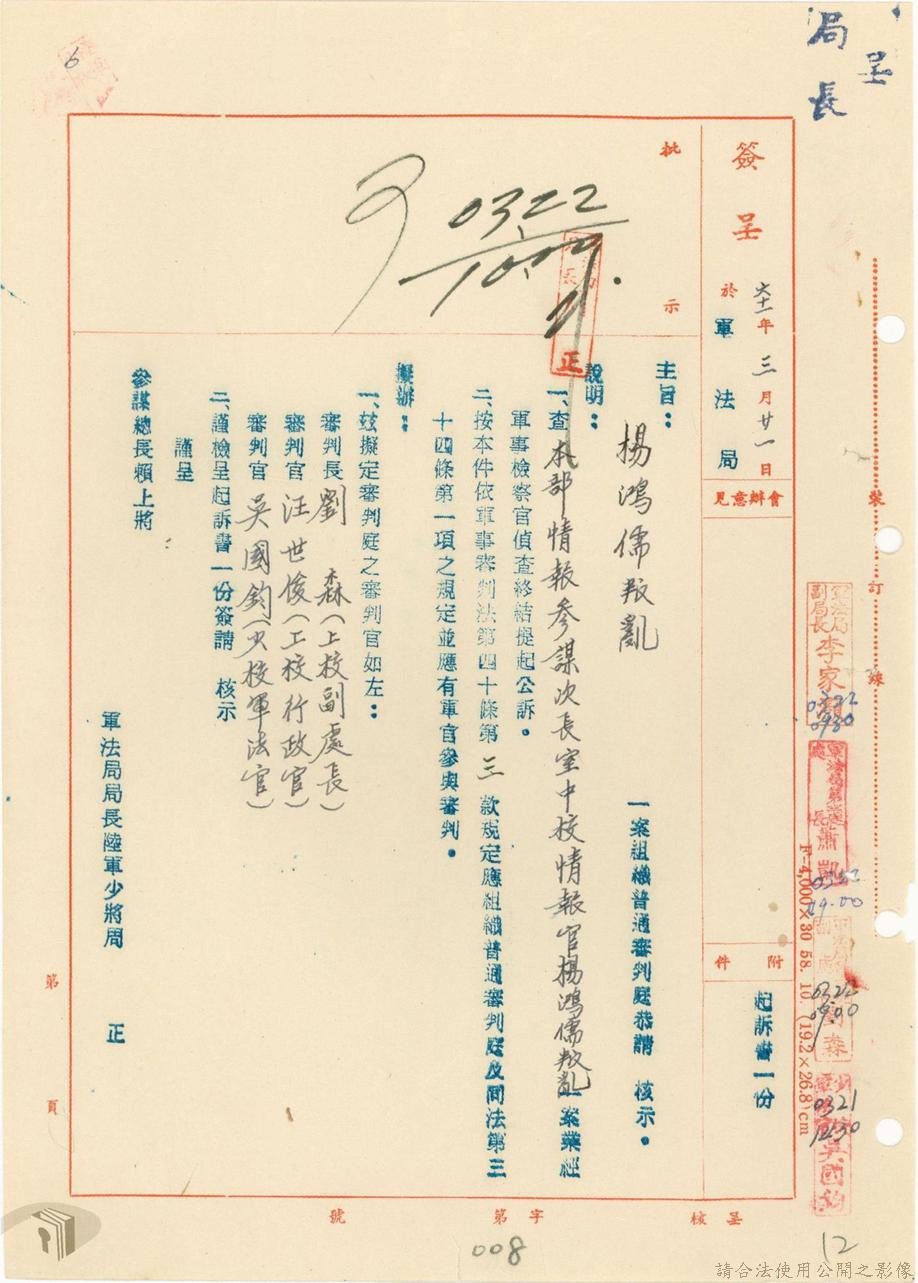 呈
局長
6
簽呈
六十一年三月廿一日
於軍法局
會辦意見
附件
起訴書一份
批示
0322
10.09.
主旨：楊鴻儒叛亂一案組織普通審判庭恭請　核示。
說明：
一、查本部情報參謀次長室中校情報官楊鴻儒叛亂一案業經
軍事檢察官偵查終結提起公訴。
二、按本件依軍事審判法第四十條第三款規定應組織普通審判庭及同法第三
十四條第一項之規定並應有軍官參與審判。
擬辦：
一、茲擬定審判庭之審判官如左：
審判長劉　森（上校副處長）
審判官汪世俊（上校行政官）
審判官吳國鈞（少校軍法官）
二、謹檢呈起訴書一份簽請　核示
謹呈
參謀總長賴上將
軍法局局長陸軍少將周　正
第　頁
裝訂線
軍法局副局長李家
0322
0930
蕭凱
0322
09.00
劉森
0322
09.00
吳國鈞
0321
1430
F-4,000×30 58. 10. (19.2×26.8)cm
呈核　字第　號
008
12
請合法使用公開之影像